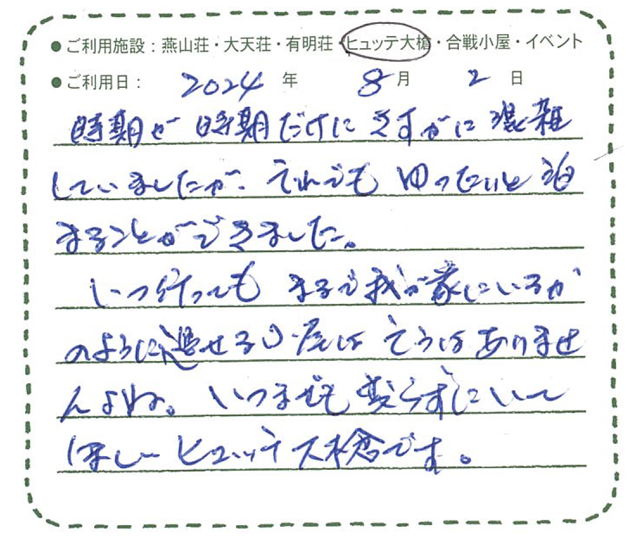 ●ご利用施設：燕山荘・大天荘・有明荘・ヒュッテ大槍・合戦小屋・イベント
●ご利用日： 2024 年 8 月 2 日
時期が時期だけにさすがに混雑
していましたが、それでもゆったりと泊
まることができました。
いつ行ってもまるで我が家にいるか
のように過せる小屋はそうはありませ
んよね。いつまでも変らずにいて
ほしいヒュッテ大槍です。